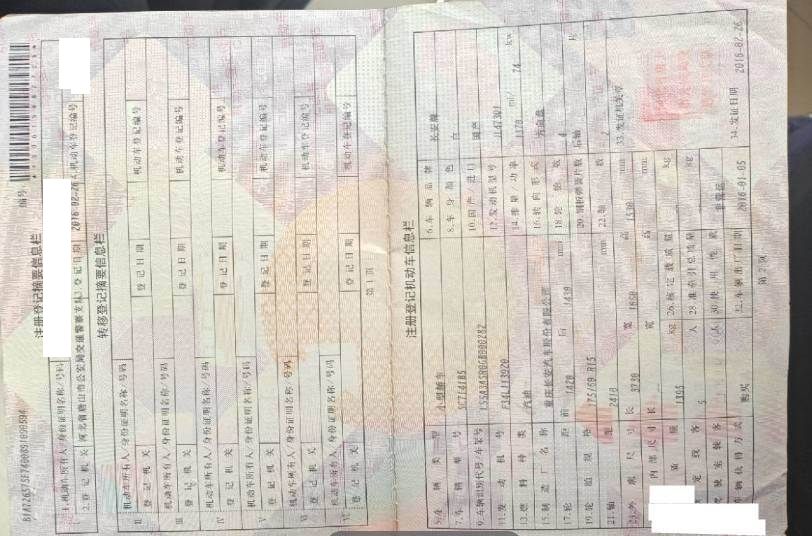 注册登记摘要信息栏
编号
1.机动车所有人/身份证明名称/号码
2.登记机关 河北省唐山市公安局交通警察支队 3.登记日期 2016-02-26 4.机动车登记编号
转移登记摘要信息栏
Ⅱ 机动车所有人/身份证明名称/号码
登记机关 登记日期 机动车登记编号
Ⅲ 机动车所有人/身份证明名称/号码
登记机关 登记日期 机动车登记编号
Ⅳ 机动车所有人/身份证明名称/号码
登记机关 登记日期 机动车登记编号
Ⅴ 机动车所有人/身份证明名称/号码
登记机关 登记日期 机动车登记编号
Ⅵ 机动车所有人/身份证明名称/号码
登记机关 登记日期 机动车登记编号
Ⅶ 机动车所有人/身份证明名称/号码
登记机关 登记日期 机动车登记编号
第1页
注册登记机动车信息栏
5.车辆类型 小型轿车 6.车辆品牌 长安牌
7.车辆型号 8.车身颜色 白
9.车辆识别代号/车架号 10.国产/进口 国产
11.发动机号 12.发动机型号
13.燃料种类 汽油 14.排量/功率 ml/ kw
15.制造厂名称 重庆长安汽车股份有限公司 16.转向形式 方向盘
17.轮距 前 1420 后 1410 mm 18.轮胎数 4
19.轮胎规格 175/60 R15 20.钢板弹簧片数 后轴
21.轴距 2410 22.轴数 2
23.外廓尺寸 长 3730 宽 1650 高 1530 mm 33.发证机关章
内部尺寸 长 宽 高 mm
质量 1395 kg 26.核定载质量 kg
定载客 5 人 28.准牵引总质量 kg
驶室载客 人 30.使用性质 非营运
车辆获得方式 购买 32.车辆出厂日期 2016-01-05 34.发证日期 2016-02-26
第2页